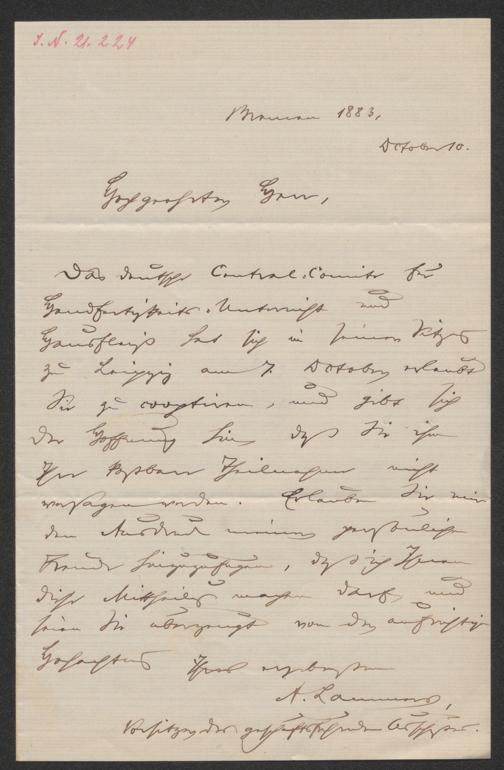 I.N. 21.224
Bremen 1883,
October 10.
Hochgeehrter Herr,
Das deutsche Central-Comite für
Handfertigkeits-Unterricht und
Hausfleiß hat sich in seiner Sitzung
zu Leipzig am 7. October erlaubt
Sie zu cooptiren, und gibt sich
der Hoffnung hin, daß Sie ihm
Ihre kostbare Theilnahme nicht
versagen werden. Erlauben Sie mir
den Ausdruck meiner persönlichen
Freude hinzuzufügen, daß ich Ihnen
diese Mittheilung machen darf, und
seien Sie überzeugt von der aufrichtigen
Hochachtung Ihres ergebensten
A. Lammers,
Vorsitzender des geschäftsführenden Ausschusses.